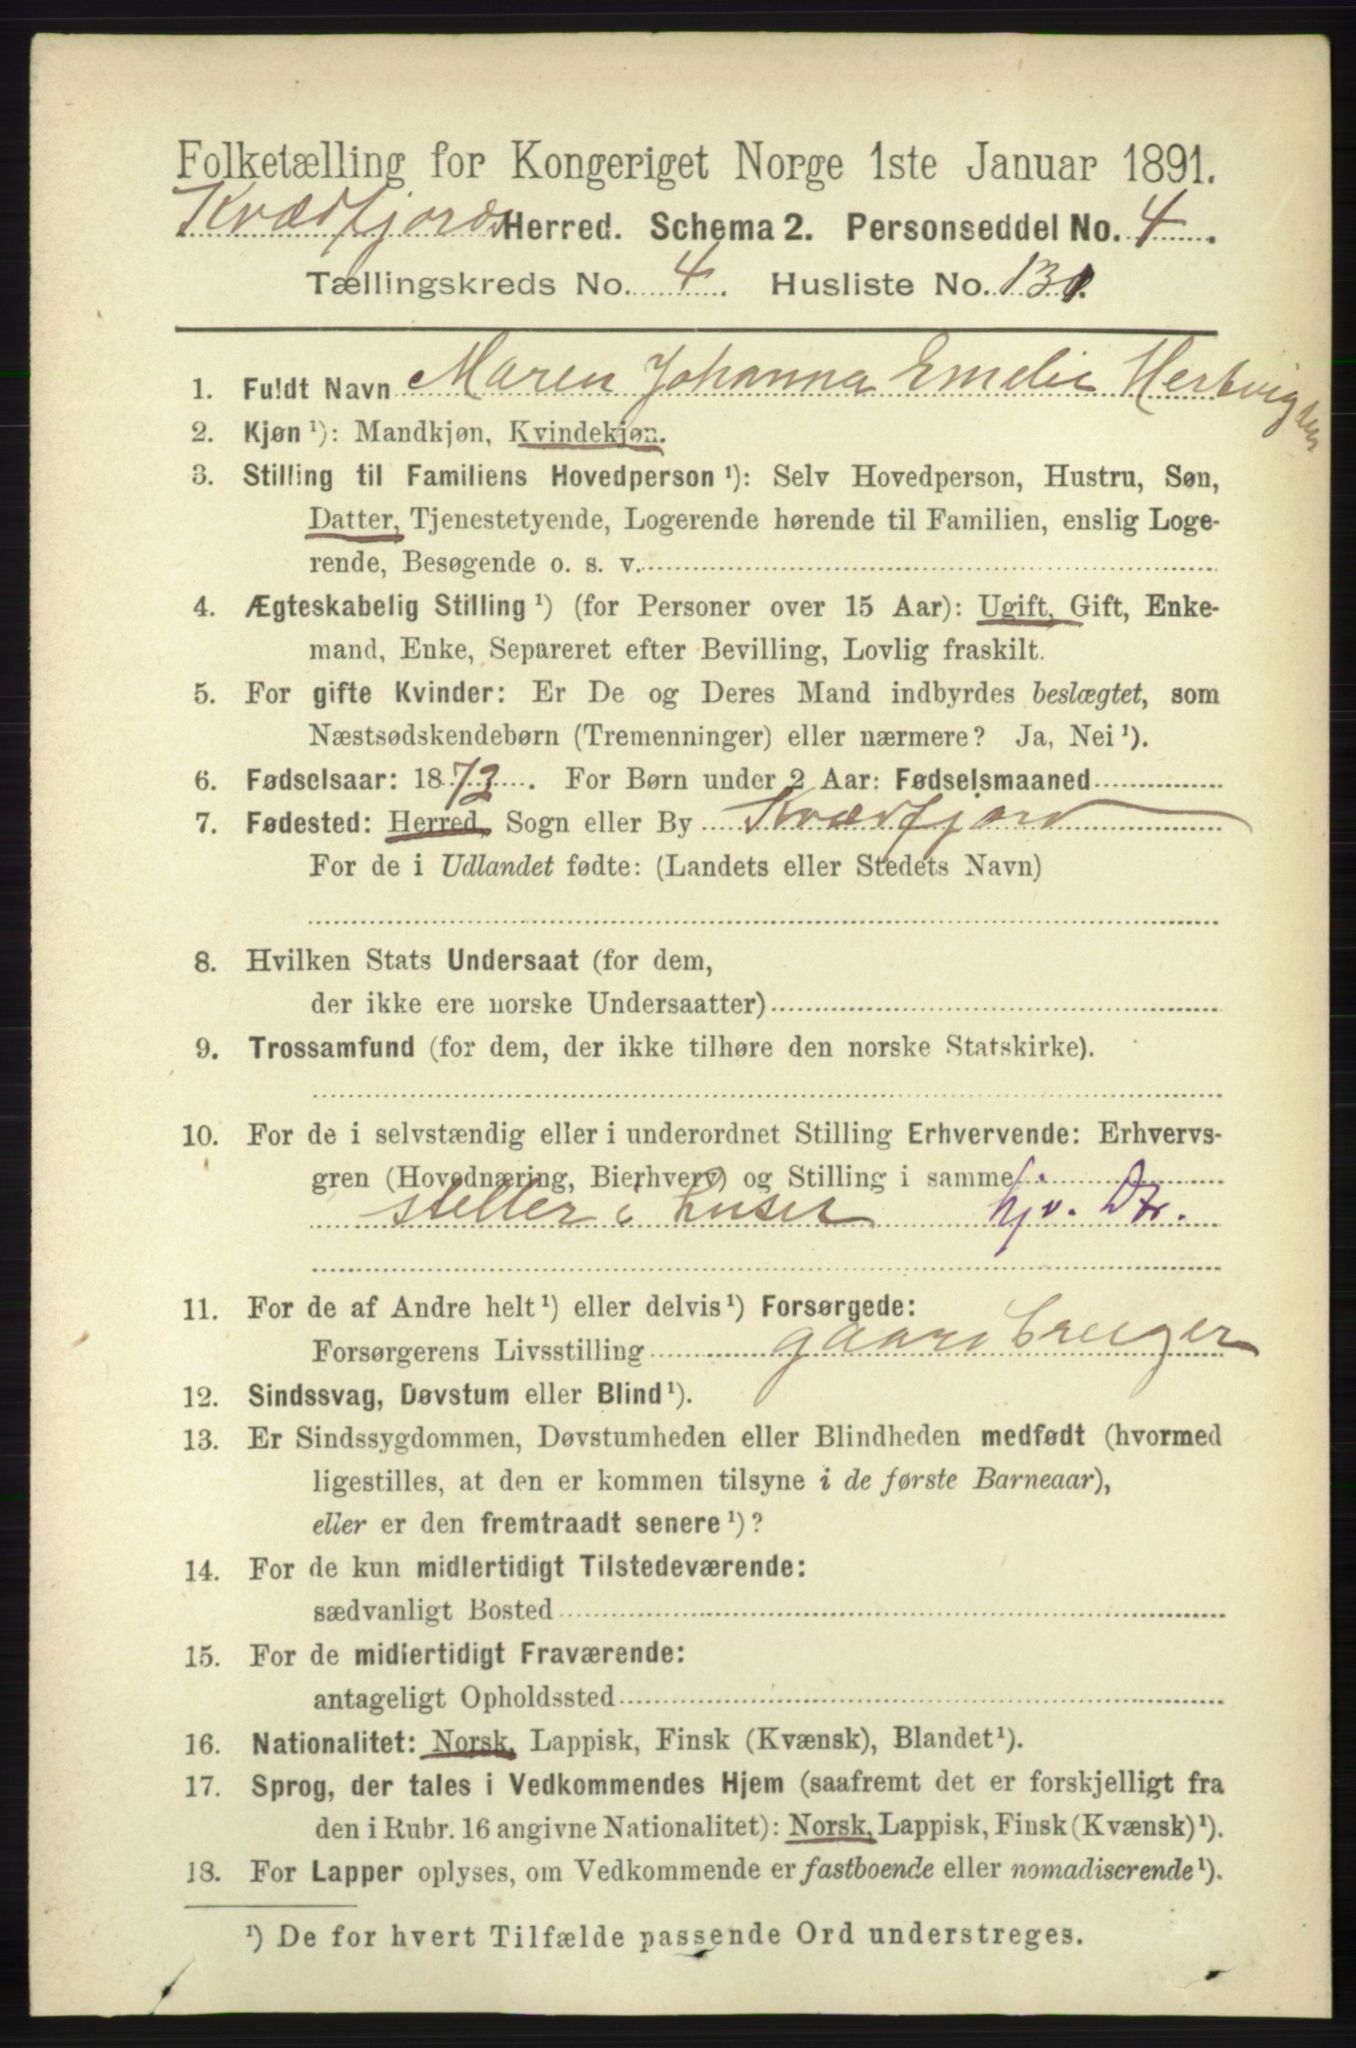 Folketælling for Kongeriget Norge 1ste Januar 1891.
Kvædfjords Herred. Schema 2. Personseddel No. 4.
Tællingskreds No. 4. Husliste No. 131.
1. Fuldt Navn Maren Johanna Emelie Hertvigsen
2. Kjøn ¹): Mandkjøn, Kvindekjøn.
3. Stilling til Familiens Hovedperson ¹): Selv Hovedperson, Hustru, Søn,
Datter, Tjenestetyende, Logerende hørende til Familien, enslig Loge-
rende, Besøgende o. s. v.
4. Ægteskabelig Stilling ¹) (for Personer over 15 Aar): Ugift, Gift, Enke-
mand, Enke, Separeret efter Bevilling, Lovlig fraskilt.
5. For gifte Kvinder: Er De og Deres Mand indbyrdes beslægtet, som
Næstsødskendebørn (Tremenninger) eller nærmere? Ja, Nei ¹).
6. Fødselsaar: 1873. For Børn under 2 Aar: Fødselsmaaned
7. Fødested: Herred, Sogn eller By Kvædfjord
For de i Udlandet fødte: (Landets eller Stedets Navn)
8. Hvilken Stats Undersaat (for dem,
der ikke ere norske Undersaatter)
9. Trossamfund (for dem, der ikke tilhøre den norske Statskirke).
10. For de i selvstændig eller i underordnet Stilling Erhvervende: Erhvervs-
gren (Hovednæring, Bierhverv) og Stilling i samme
steller i huset hjv. Dtr.
11. For de af Andre helt ¹) eller delvis ¹) Forsørgede:
Forsørgerens Livsstilling gaardbruger
12. Sindssvag, Døvstum eller Blind ¹).
13. Er Sindssygdommen, Døvstumheden eller Blindheden medfødt (hvormed
ligestilles, at den er kommen tilsyne i de første Barneaar),
eller er den fremtraadt senere ¹)?
14. For de kun midlertidigt Tilstedeværende:
sædvanligt Bosted
15. For de midlertidigt Fraværende:
antageligt Opholdssted
16. Nationalitet: Norsk, Lappisk, Finsk (Kvænsk), Blandet ¹).
17. Sprog, der tales i Vedkommendes Hjem (saafremt det er forskjelligt fra
den i Rubr. 16 angivne Nationalitet): Norsk, Lappisk, Finsk (Kvænsk) ¹).
18. For Lapper oplyses, om Vedkommende er fastboende eller nomadiserende ¹).
¹) De for hvert Tilfælde passende Ord understreges.